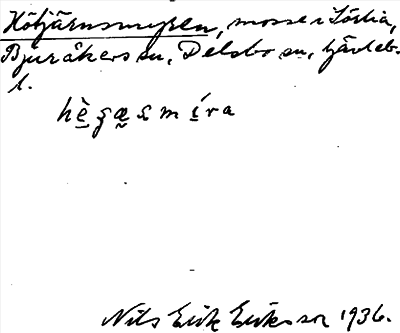 Hötjärnsmyren, mosse i Lörlia,
Bjuråkers sn, Delsbo sn, Gävleb.
l.
hègæsmíra
Nils Erik Eriksson 1936.